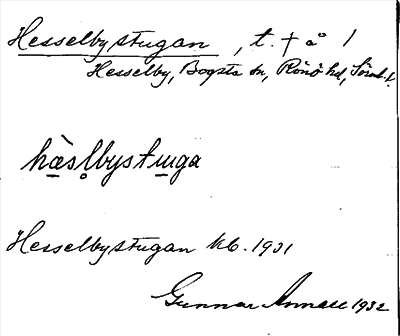 Hesselbystugan, t. † å 1
Hesselby, Bogsta sn, Rönö hd, Sörml.
hàslbystuga
Hesselbystugan kb. 1931
Gunnar 1932